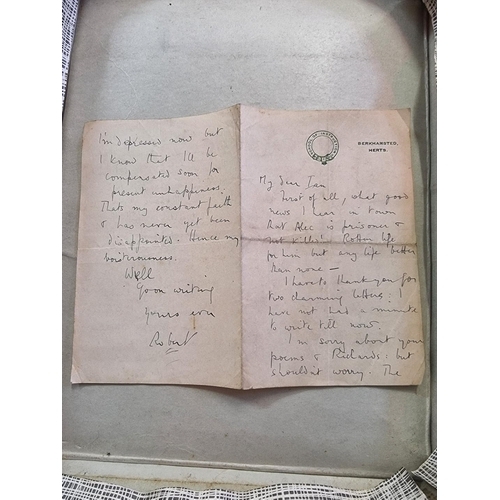 BERKHAMSTED,
HERTS.
My dear Ian
First of all, what good
news I hear in town
that Alec is prisoner &
not killed. Rotten life
for him but any life better
than none —
I have to thank you for
two charming letters: I
have not had a minute
to write till now.
I'm sorry about your
poems & Richards: but
shouldn't worry. The
I'm depressed now but
I know that I'll be
compensated soon for
present unhappiness.
Thats my constant faith
& has never yet been
disappointed. Hence my
boisterousness.
Well
Go on writing
Yours ever
Robert